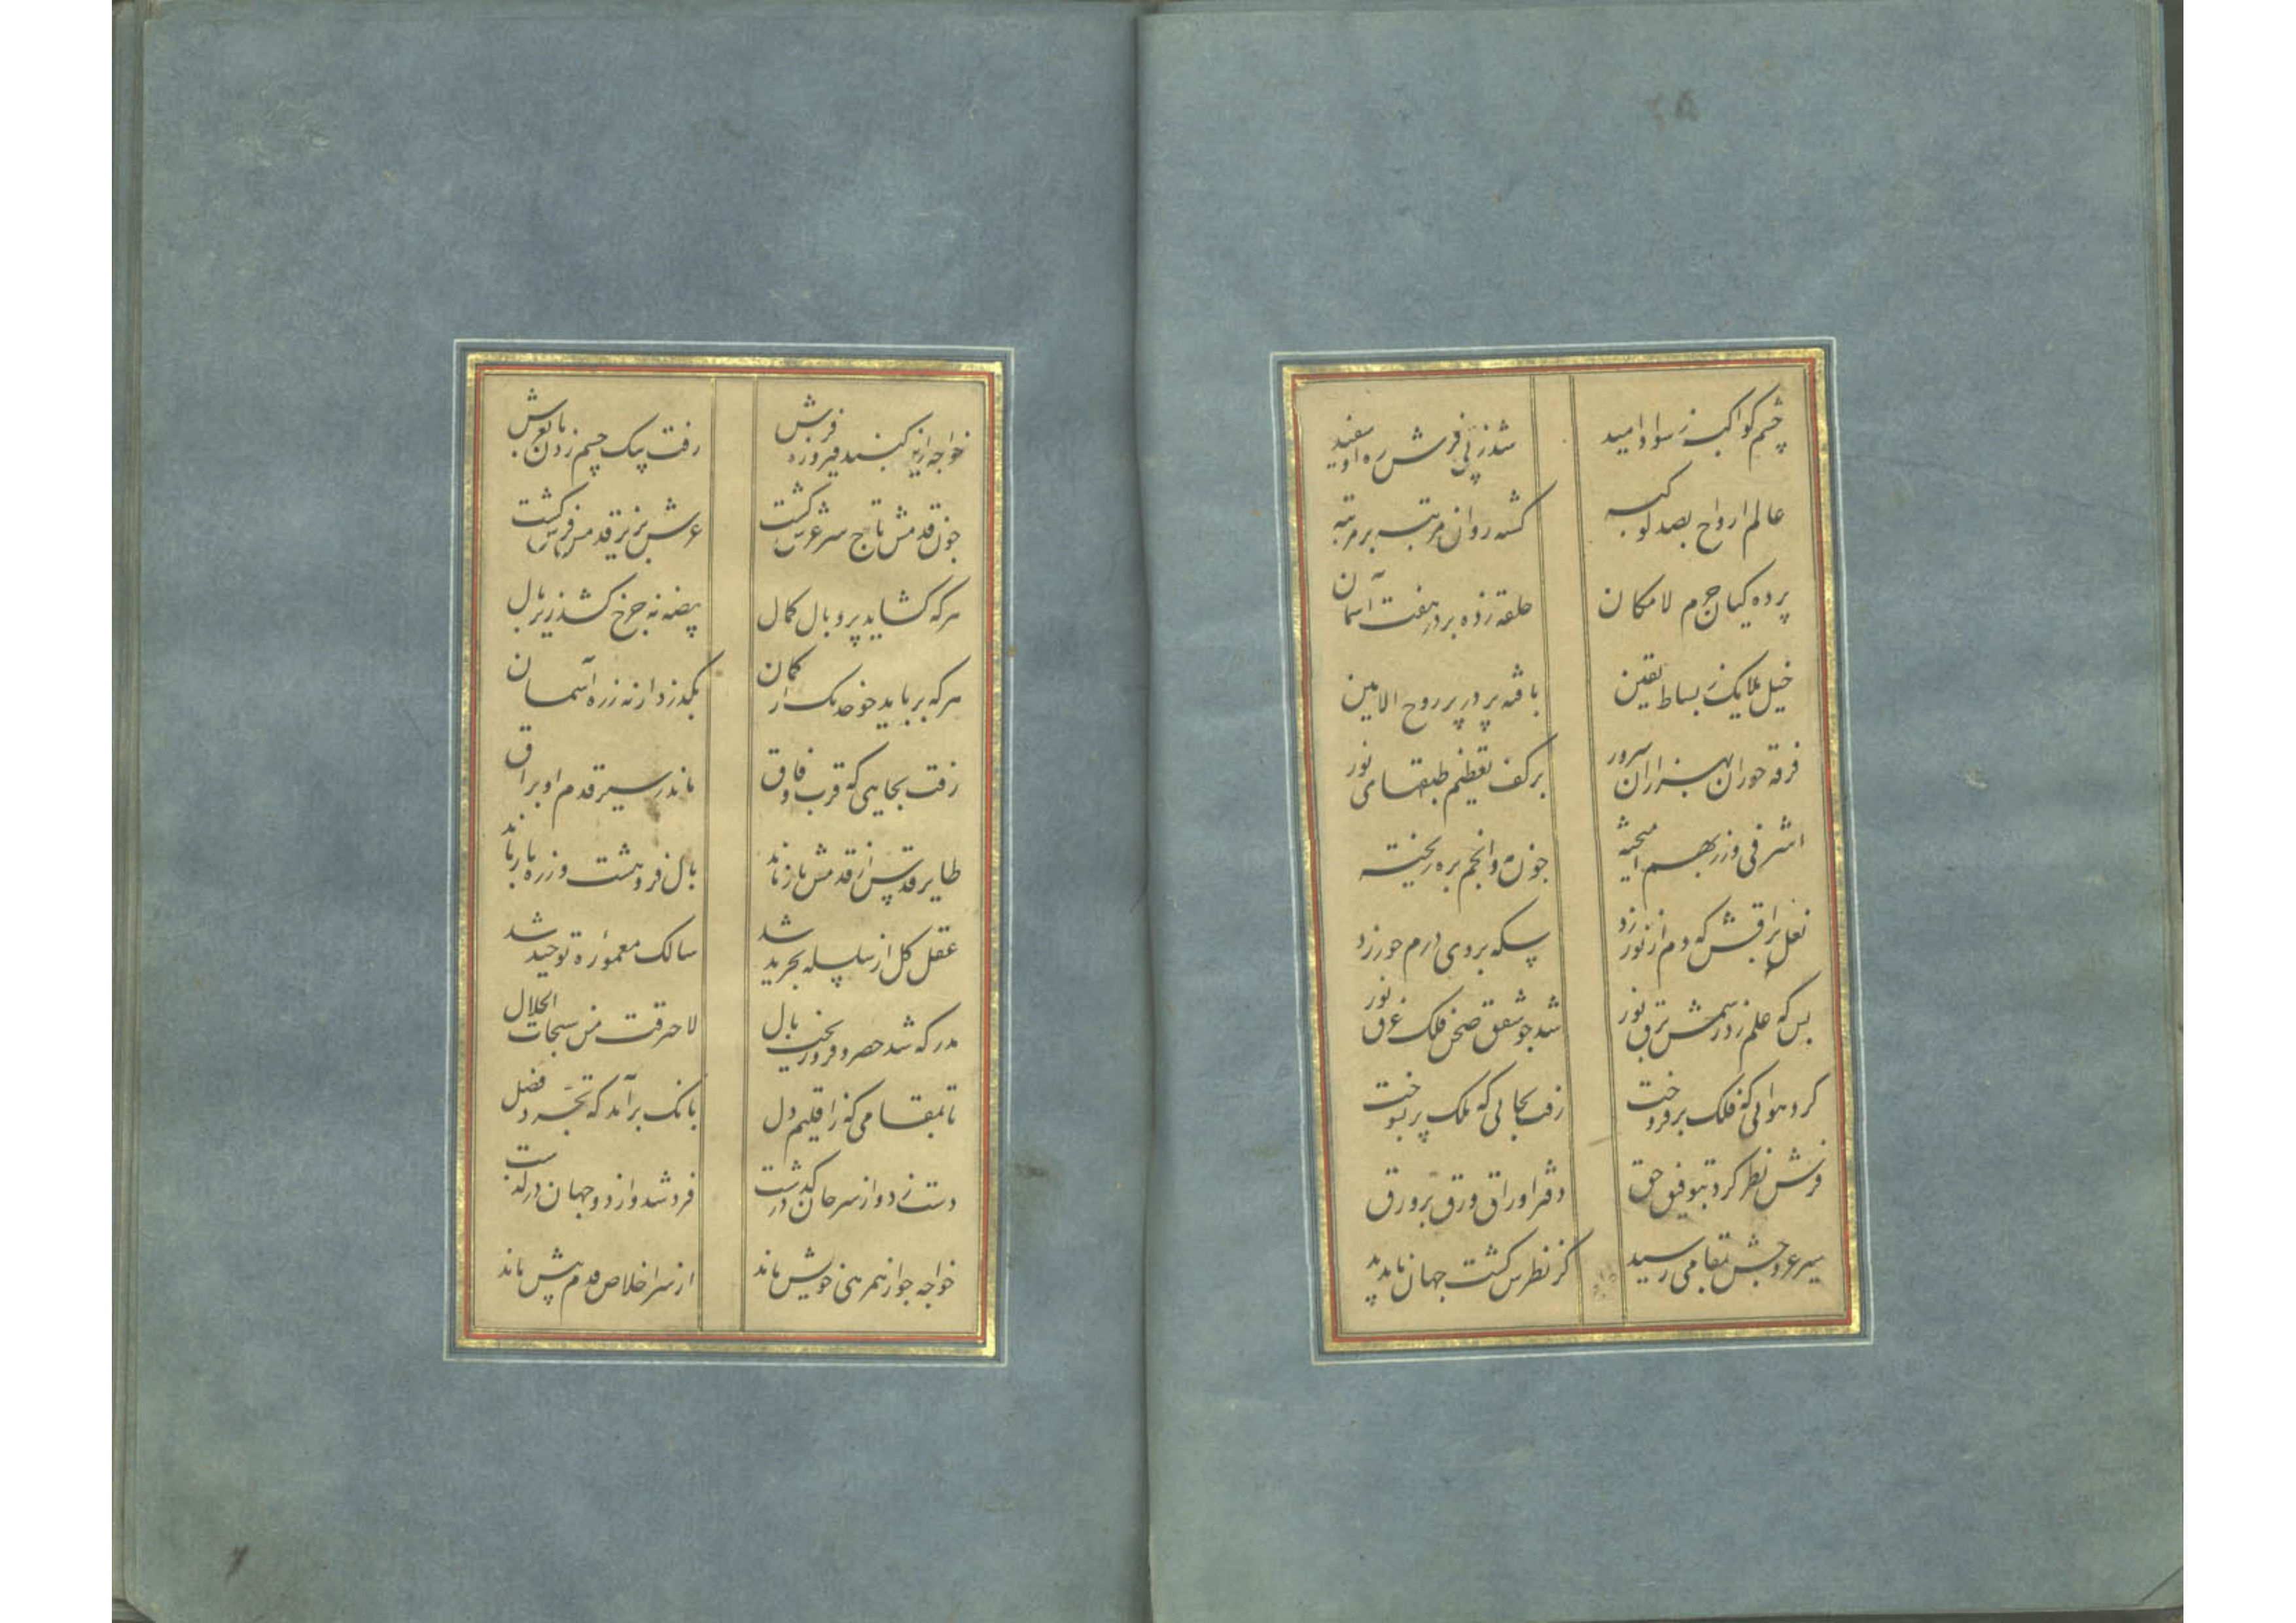 چشم کواکب ز سواد امید شد ز پی فرش ره او سفید
عالم ارواح بصد کوکبه کشته روان مرتبه بر مرتبه
پرده کیان حرم لامکان حلقه زده بر در هفت آسمان
خیل ملایک ز بساط یقین بافته پر در پر روح الامین
فرقه حوران بهزاران سرور بر کف تعظیم طبقهای نور
اشرفی و زر بهم امیخته جون مه و انجم بره ریخته
نعل براقش که دم از نور زد سکه بروی درم حور زد
بس که علم زد ز سمش برق نور شد جو شفق صحن فلک غرق نور
کرد هوائی که فلک برفروخت رفت بجائی که ملک پر بسوخت
فرش نظر کرد بتوفیق حق دفتر اوراق ورق بر ورق
سیر عروجش بمقامی رسید کز نظرش کشت جهان ناپدید
خواجه ازین کنبد فیروزه فرش رفت بیک چشم زدن تا بعرش
جون قدمش تاج سر عرش کشت عرش بزیر قدمش فرش کشت
هر که کشاید پر و بال کمال بیضه نه جرخ کشد زیر بال
هر که برباید جو خدنک از کمان بکذرد از نه زره آسمان
رفت بجایی که قرب و فاق ماند ز سیر قدم او براق
طایر قدس از قدمش باز ماند بال فروهشت و ز ره بازماند
عقل کل از سلسله تجرید شد سالک معموره توحید شد
مدرکه شد حصر و فرو ریخت بال لاحترقت من سبحات الجلال
تا بمقامی که ز اقلیم دل بانک برآمد که تجرد فضل
دست زد و از سر جان درکذشت فرد شد و از دو جهان درکذشت
خواجه جو از همرهی خویش ماند از سر اخلاص قدم پیش ماند